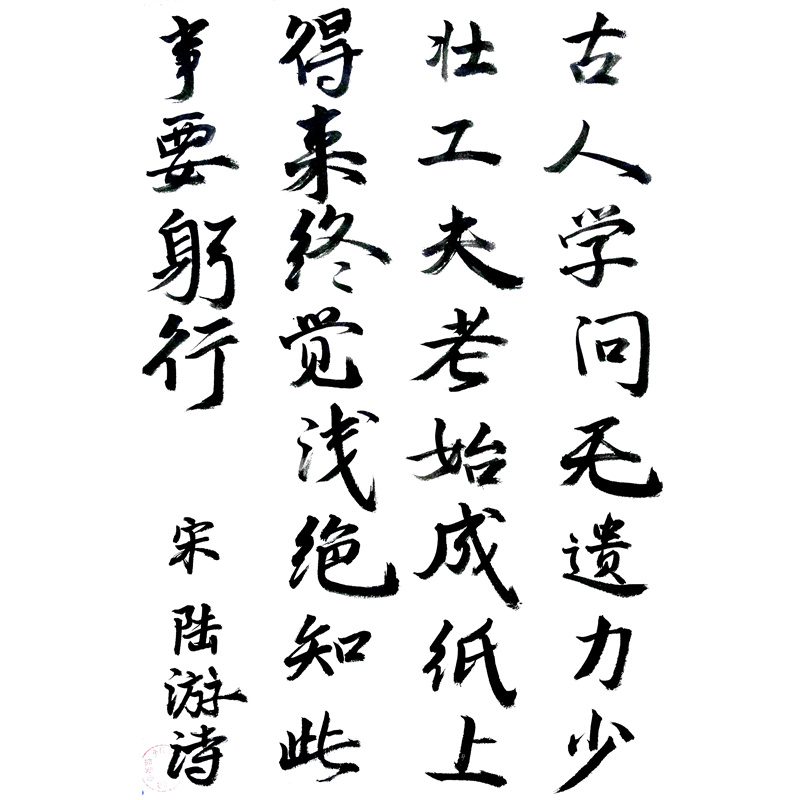 古人学问无遗力少
壮工夫老始成纸上
得来终觉浅绝知此
事要躬行
宋陆游诗